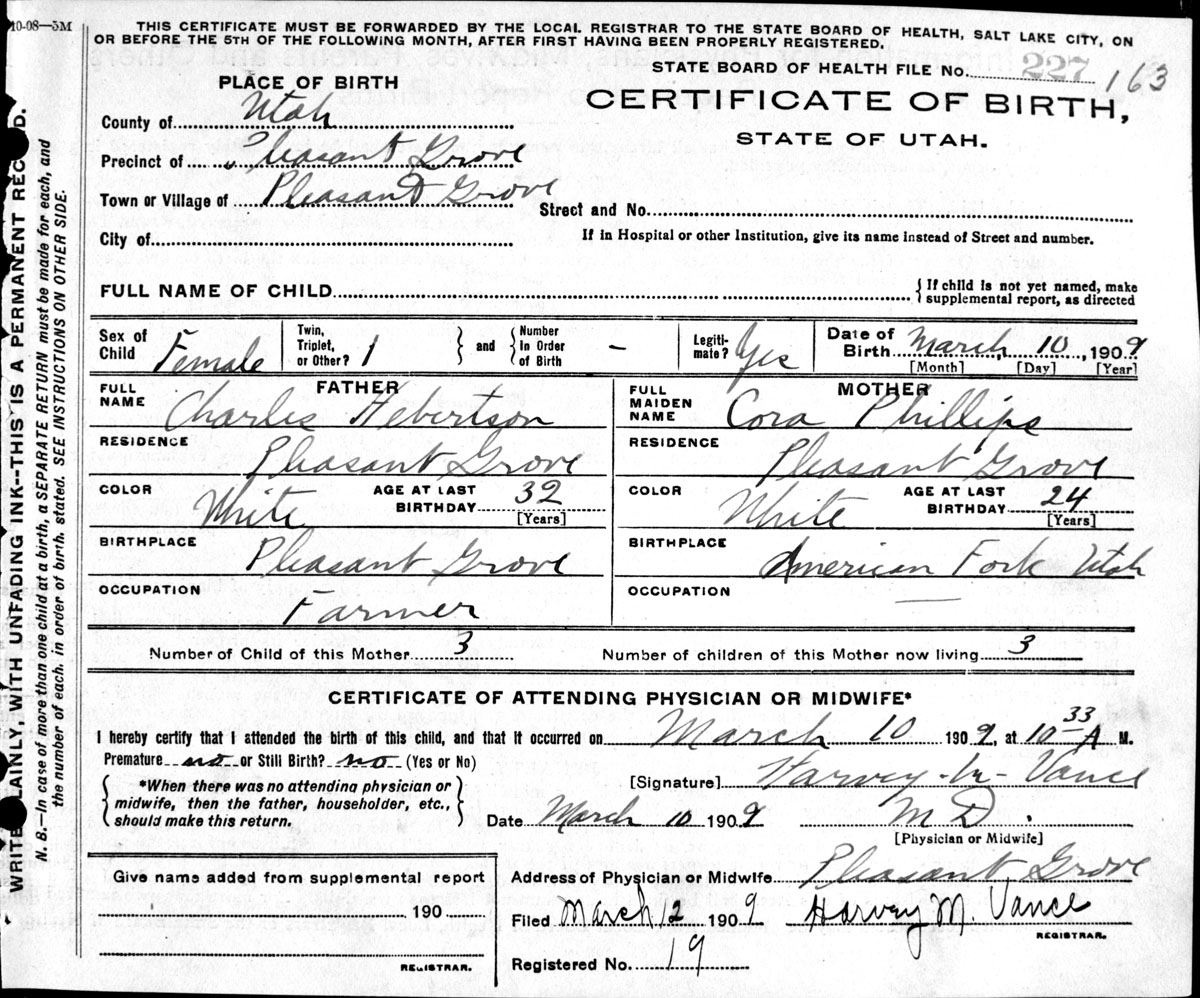 10-08—5M
THIS CERTIFICATE MUST BE FORWARDED BY THE LOCAL REGISTRAR TO THE STATE BOARD OF HEALTH, SALT LAKE CITY, ON
OR BEFORE THE 5TH OF THE FOLLOWING MONTH, AFTER FIRST HAVING BEEN PROPERLY REGISTERED.
STATE BOARD OF HEALTH FILE No. 227 163
PLACE OF BIRTH
CERTIFICATE OF BIRTH,
STATE OF UTAH.
County of Utah
Precinct of Pleasant Grove
Town or Village of Pleasant Grove
Street and No.
City of
If in Hospital or other Institution, give its name instead of Street and number.
FULL NAME OF CHILD
{ If child is not yet named, make
supplemental report, as directed
Sex of Child Female
Twin, Triplet, or Other? 1 } and { Number In Order of Birth –
Legiti-mate? Yes
Date of Birth March 10, 1909
[Month] [Day] [Year]
FATHER
FULL NAME Charles Hebertson
RESIDENCE Pleasant Grove
COLOR White
AGE AT LAST BIRTHDAY 32
[Years]
BIRTHPLACE Pleasant Grove
OCCUPATION Farmer
MOTHER
FULL MAIDEN NAME Cora Phillips
RESIDENCE Pleasant Grove
COLOR White
AGE AT LAST BIRTHDAY 24
[Years]
BIRTHPLACE American Fork Utah
OCCUPATION —
Number of Child of this Mother 3
Number of children of this Mother now living 3
CERTIFICATE OF ATTENDING PHYSICIAN OR MIDWIFE*
I hereby certify that I attended the birth of this child, and that it occurred on March 10 1909, at 10 33 A M.
Premature no or Still Birth? no (Yes or No)
[Signature] Harvey M Vance
{ *When there was no attending physician or
midwife, then the father, householder, etc.,
should make this return. }
Date March 10 1909 M D.
[Physician or Midwife]
Address of Physician or Midwife Pleasant Grove
Give name added from supplemental report
190
REGISTRAR.
Filed March 12 1909 Harvey M. Vance
REGISTRAR.
Registered No. 19
WRITE PLAINLY, WITH UNFADING INK--THIS IS A PERMANENT RECORD.
N. B.—In case of more than one child at a birth, a SEPARATE RETURN must be made for each, and
the number of each, in order of birth, stated. SEE INSTRUCTIONS ON OTHER SIDE.